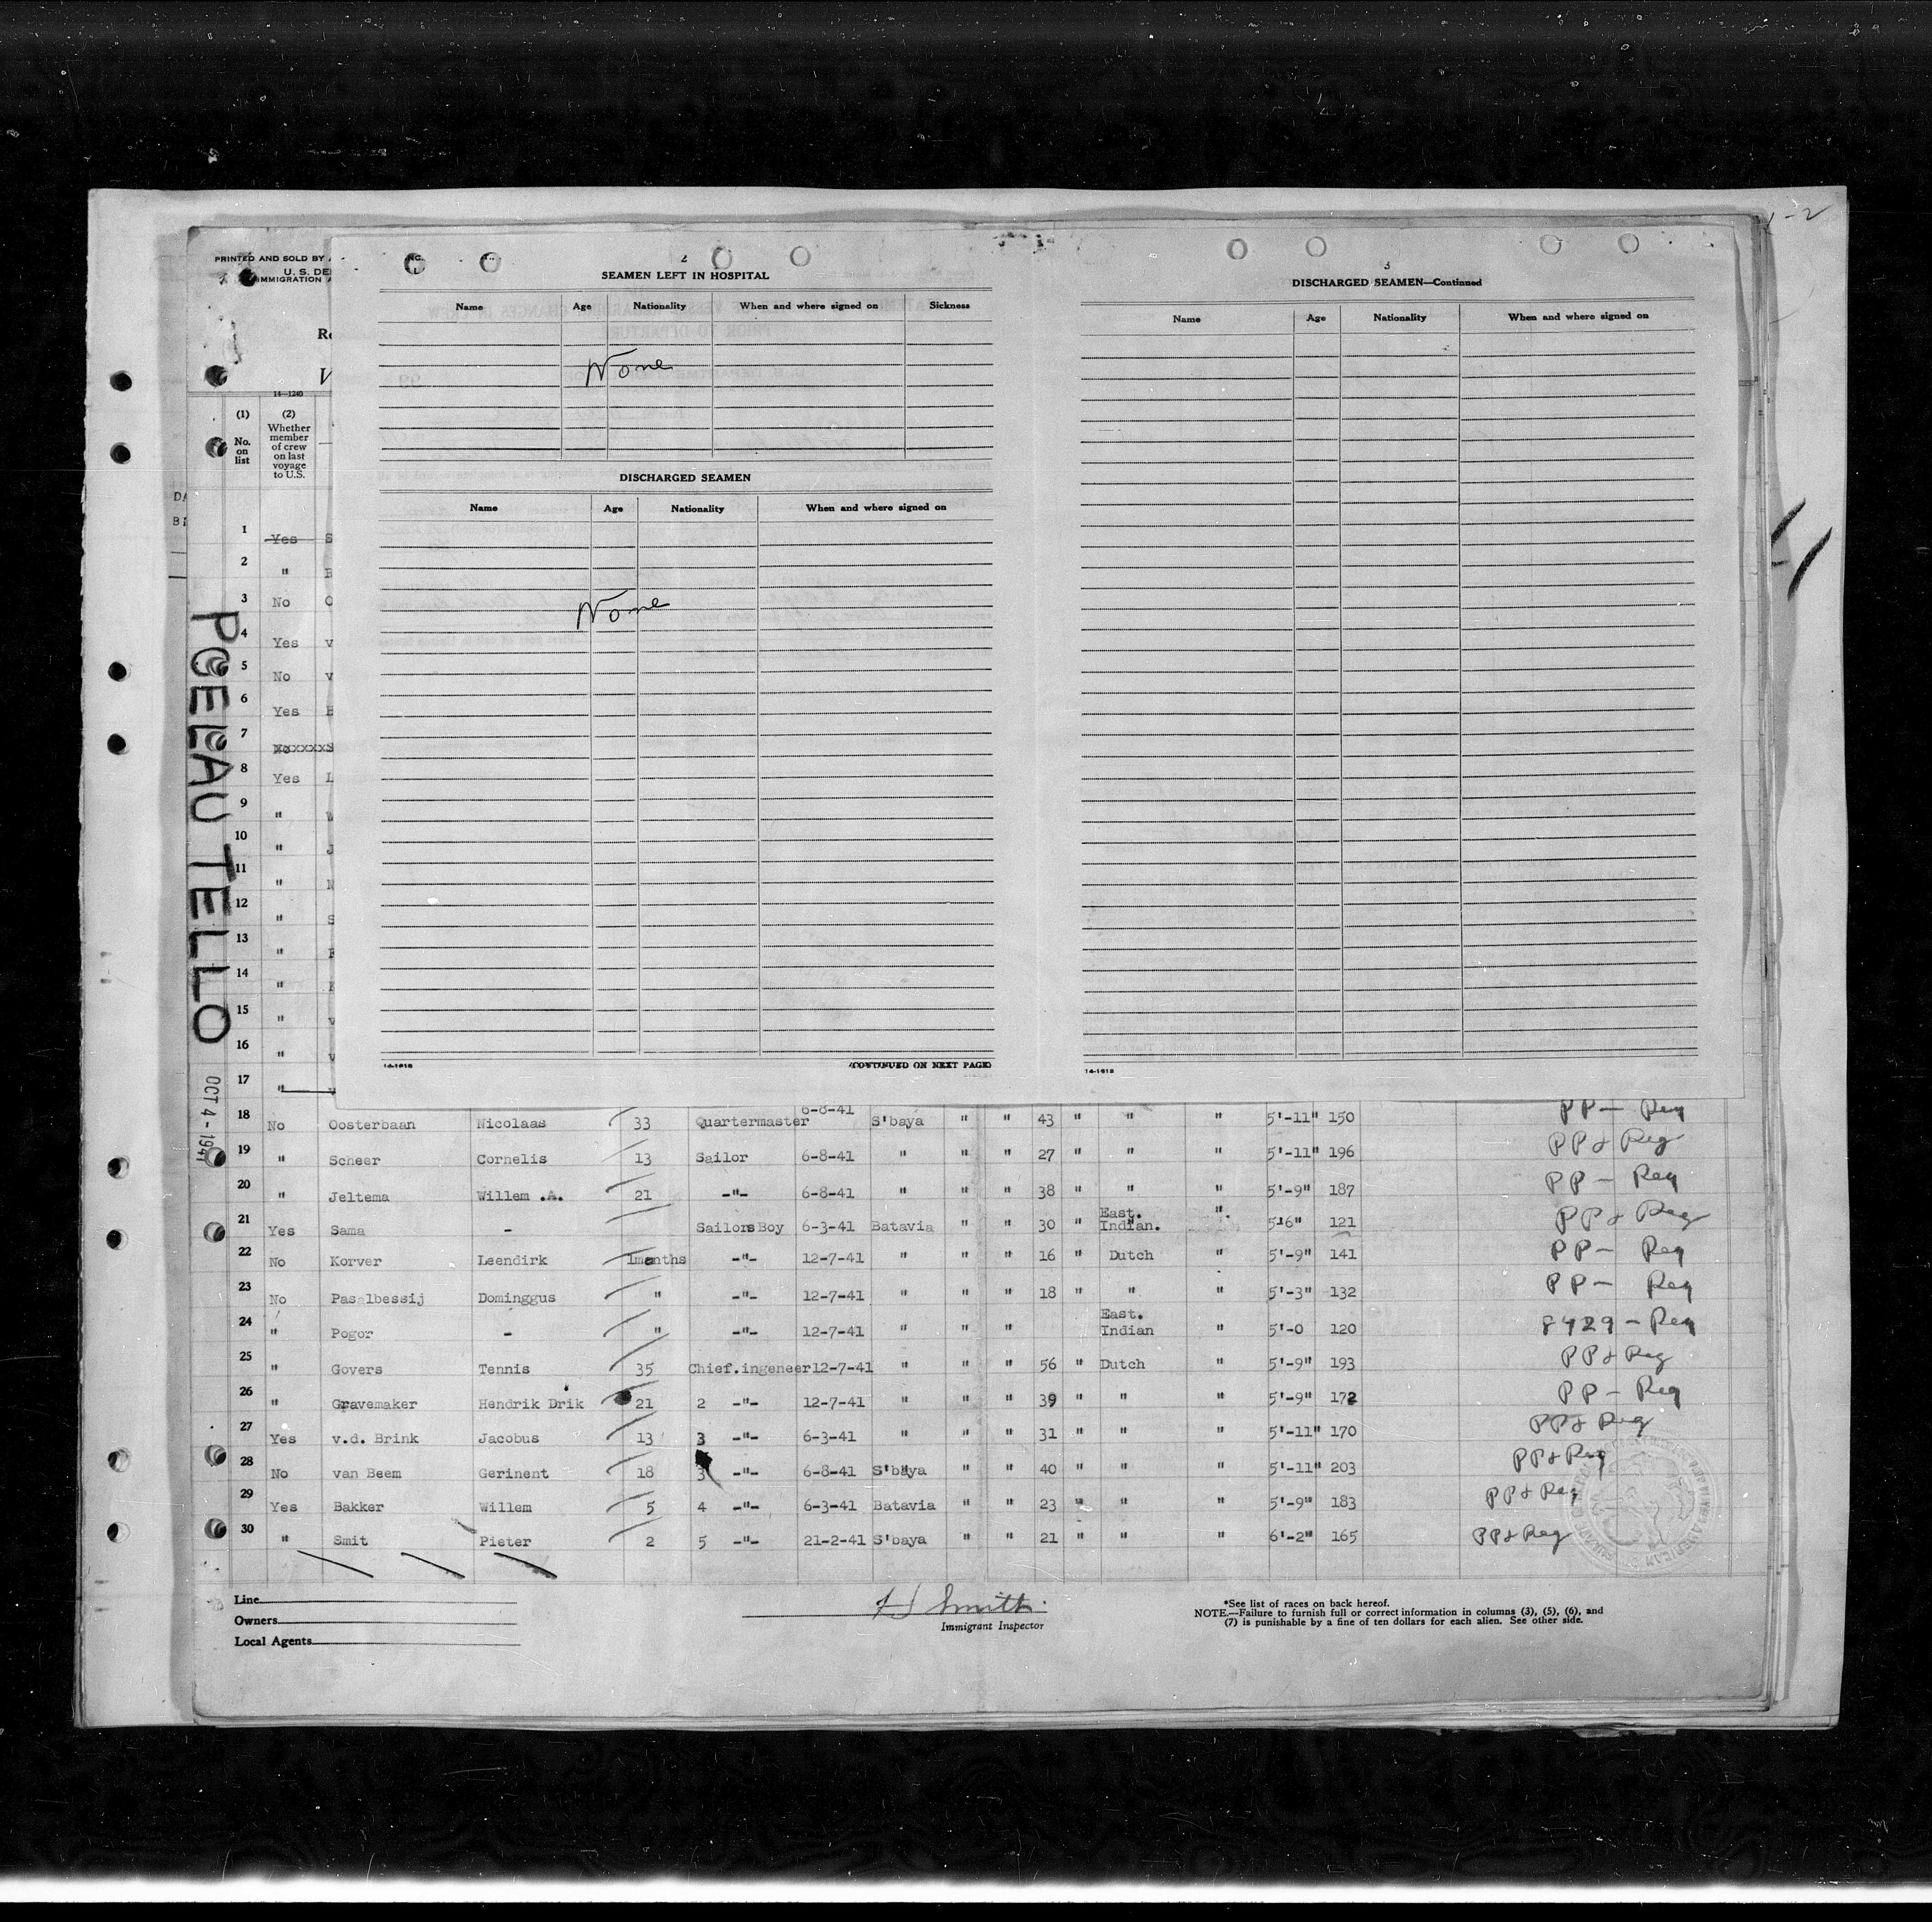 1-2
PRINTED AND SOLD BY
U. S. DE
IMMIGRATION
14-1240
(1) (2)
No. on list
Whether member of crew on last voyage to U.S.
2
SEAMEN LEFT IN HOSPITAL
Name Age Nationality When and where signed on Sickness
None
DISCHARGED SEAMEN
Name Age Nationality When and where signed on
None
14-1618 (CONTINUED ON NEXT PAGE)
3
DISCHARGED SEAMEN—Continued
Name Age Nationality When and where signed on
14-1618
POELAU TELLO
OCT 4 - 1941
1 Yes S
2 "
3 No
4 Yes v
5 No v
6 Yes
7
8 Yes L
9 " W
10 " J
11 "
12 " S
13 "
14 "
15 " v
16 " v
17 "
18 No Oosterbaan Nicolaas 33 Quartermaster 6-8-41 S'baya " " 43 " " " 5'-11" 150 PP - Reg
19 " Scheer Cornelis 13 Sailor 6-8-41 " " " 27 " " " 5'-11" 196 PP & Reg
20 " Jeltema Willem .A. 21 -"- 6-8-41 " " " 38 " " " 5'-9" 187 PP - Reg
21 Yes Sama - Sailors Boy 6-3-41 Batavia " " 30 " East. Indian. " 5'6" 121 PP & Reg
22 No Korver Leendirk 1months -"- 12-7-41 " " " 16 " Dutch " 5'-9" 141 PP - Reg
23 No Pasalbessij Dominggus " -"- 12-7-41 " " " 18 " " " 5'-3" 132 PP - Reg
24 " Pogor - " -"- 12-7-41 " " " East. Indian " 5'-0 120 8429 - Reg
25 " Govers Tennis 35 Chief.ingeneer 12-7-41 " " " 56 " Dutch " 5'-9" 193 PP & Reg
26 " Gravemaker Hendrik Drik 21 2 -"- 12-7-41 " " " 39 " " " 5'-9" 172 PP - Reg
27 Yes v.d. Brink Jacobus 13 3 -"- 6-3-41 " " " 31 " " " 5'-11" 170 PP & Reg
28 No van Beem Gerinent 18 3 -"- 6-8-41 S'baya " " 40 " " " 5'-11" 203 PP & Reg
29 Yes Bakker Willem 5 4 -"- 6-3-41 Batavia " " 23 " " " 5'-9" 183 PP & Reg
30 " Smit Pieter 2 5 -"- 21-2-41 S'baya " " 21 " " " 6'-2" 165 PP & Reg
Line
Owners
Local Agents
H J Smith
Immigrant Inspector
*See list of races on back hereof.
NOTE.—Failure to furnish full or correct information in columns (3), (5), (6), and
(7) is punishable by a fine of ten dollars for each alien. See other side.